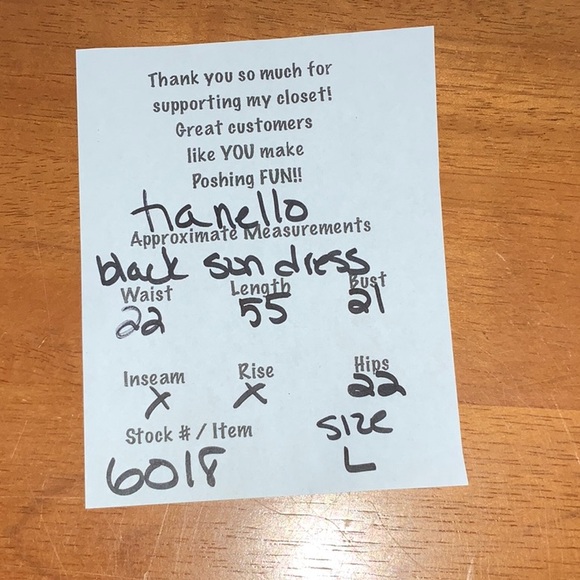 Thank you so much for
supporting my closet!
Great customers
like YOU make
Poshing FUN!!
tianello
Approximate Measurements
black sun dress
Waist Length Bust
22 55 21
Inseam Rise Hips
X X 22
Stock # / Item size
6018 L